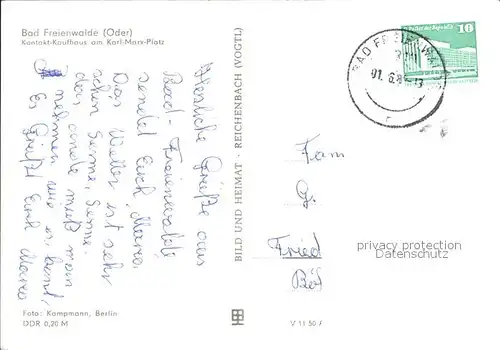 Bad Freienwalde (Oder)
Kontakt-Kaufhaus am Karl-Marx-Platz
Herzliche Grüße aus
Bad-Freienwalde
sendet Euch
Das Wetter ist sehr
schön Sonne, Sonne.
das andere muß man
nehmen wie es kommt,
Es Grüßt Euch
BILD UND HEIMAT · REICHENBACH (VOGTL)
10
BAD FREIENWAL
01.6.8
Fam
G.
Fried
privacy protection
Datenschutz
Foto: Kampmann, Berlin
DDR 0,20 M
V 11 50 A